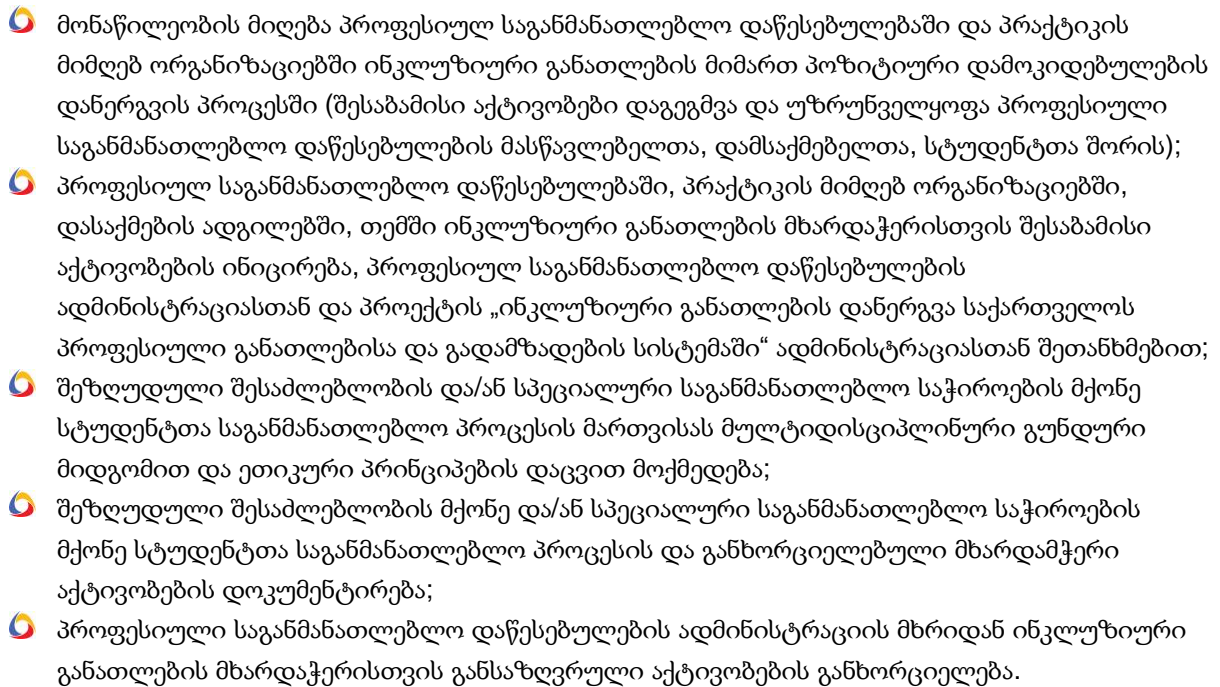 მონაწილეობის მიღება პროფესიულ საგანმანათლებლო დაწესებულებაში და პრაქტიკის
მიმღებ ორგანიზაციებში ინკლუზიური განათლების მიმართ პოზიტიური დამოკიდებულების
დანერგვის პროცესში (შესაბამისი აქტივობები დაგეგმვა და უზრუნველყოფა პროფესიული
საგანმანათლებლო დაწესებულების მასწავლებელთა, დამსაქმებელთა, სტუდენტთა შორის);
პროფესიულ საგანმანათლებლო დაწესებულებაში, პრაქტიკის მიმღებ ორგანიზაციებში,
დასაქმების ადგილებში, თემში ინკლუზიური განათლების მხარდაჭერისთვის შესაბამისი
აქტივობების ინიცირება, პროფესიულ საგანმანათლებლო დაწესებულების
ადმინისტრაციასთან და პროექტის „ინკლუზიური განათლების დანერგვა საქართველოს
პროფესიული განათლებისა და გადამზადების სისტემაში“ ადმინისტრაციასთან შეთანხმებით;
შეზღუდული შესაძლებლობის და/ან სპეციალური საგანმანათლებლო საჭიროების მქონე
სტუდენტთა საგანმანათლებლო პროცესის მართვისას მულტიდისციპლინური გუნდური
მიდგომით და ეთიკური პრინციპების დაცვით მოქმედება;
შეზღუდული შესაძლებლობის მქონე და/ან სპეციალური საგანმანათლებლო საჭიროების
მქონე სტუდენტთა საგანმანათლებლო პროცესის და განხორციელებული მხარდამჭერი
აქტივობების დოკუმენტირება;
პროფესიული საგანმანათლებლო დაწესებულების ადმინისტრაციის მხრიდან ინკლუზიური
განათლების მხარდაჭერისთვის განსაზღვრული აქტივობების განხორციელება.